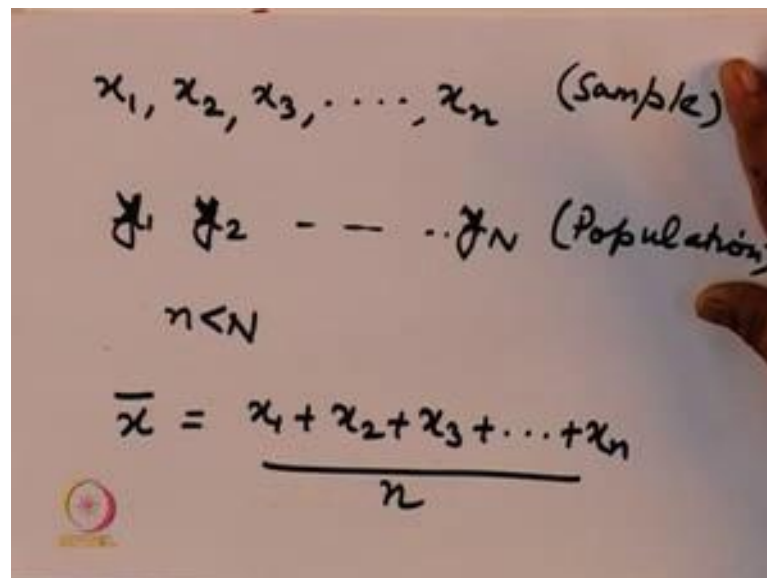 x₁, x₂, x₃, ....., xₙ (Sample)
y₁ y₂ - - .. y_N (Population)
n<N
x̄ = x₁ + x₂ + x₃ + ... + xₙ
n